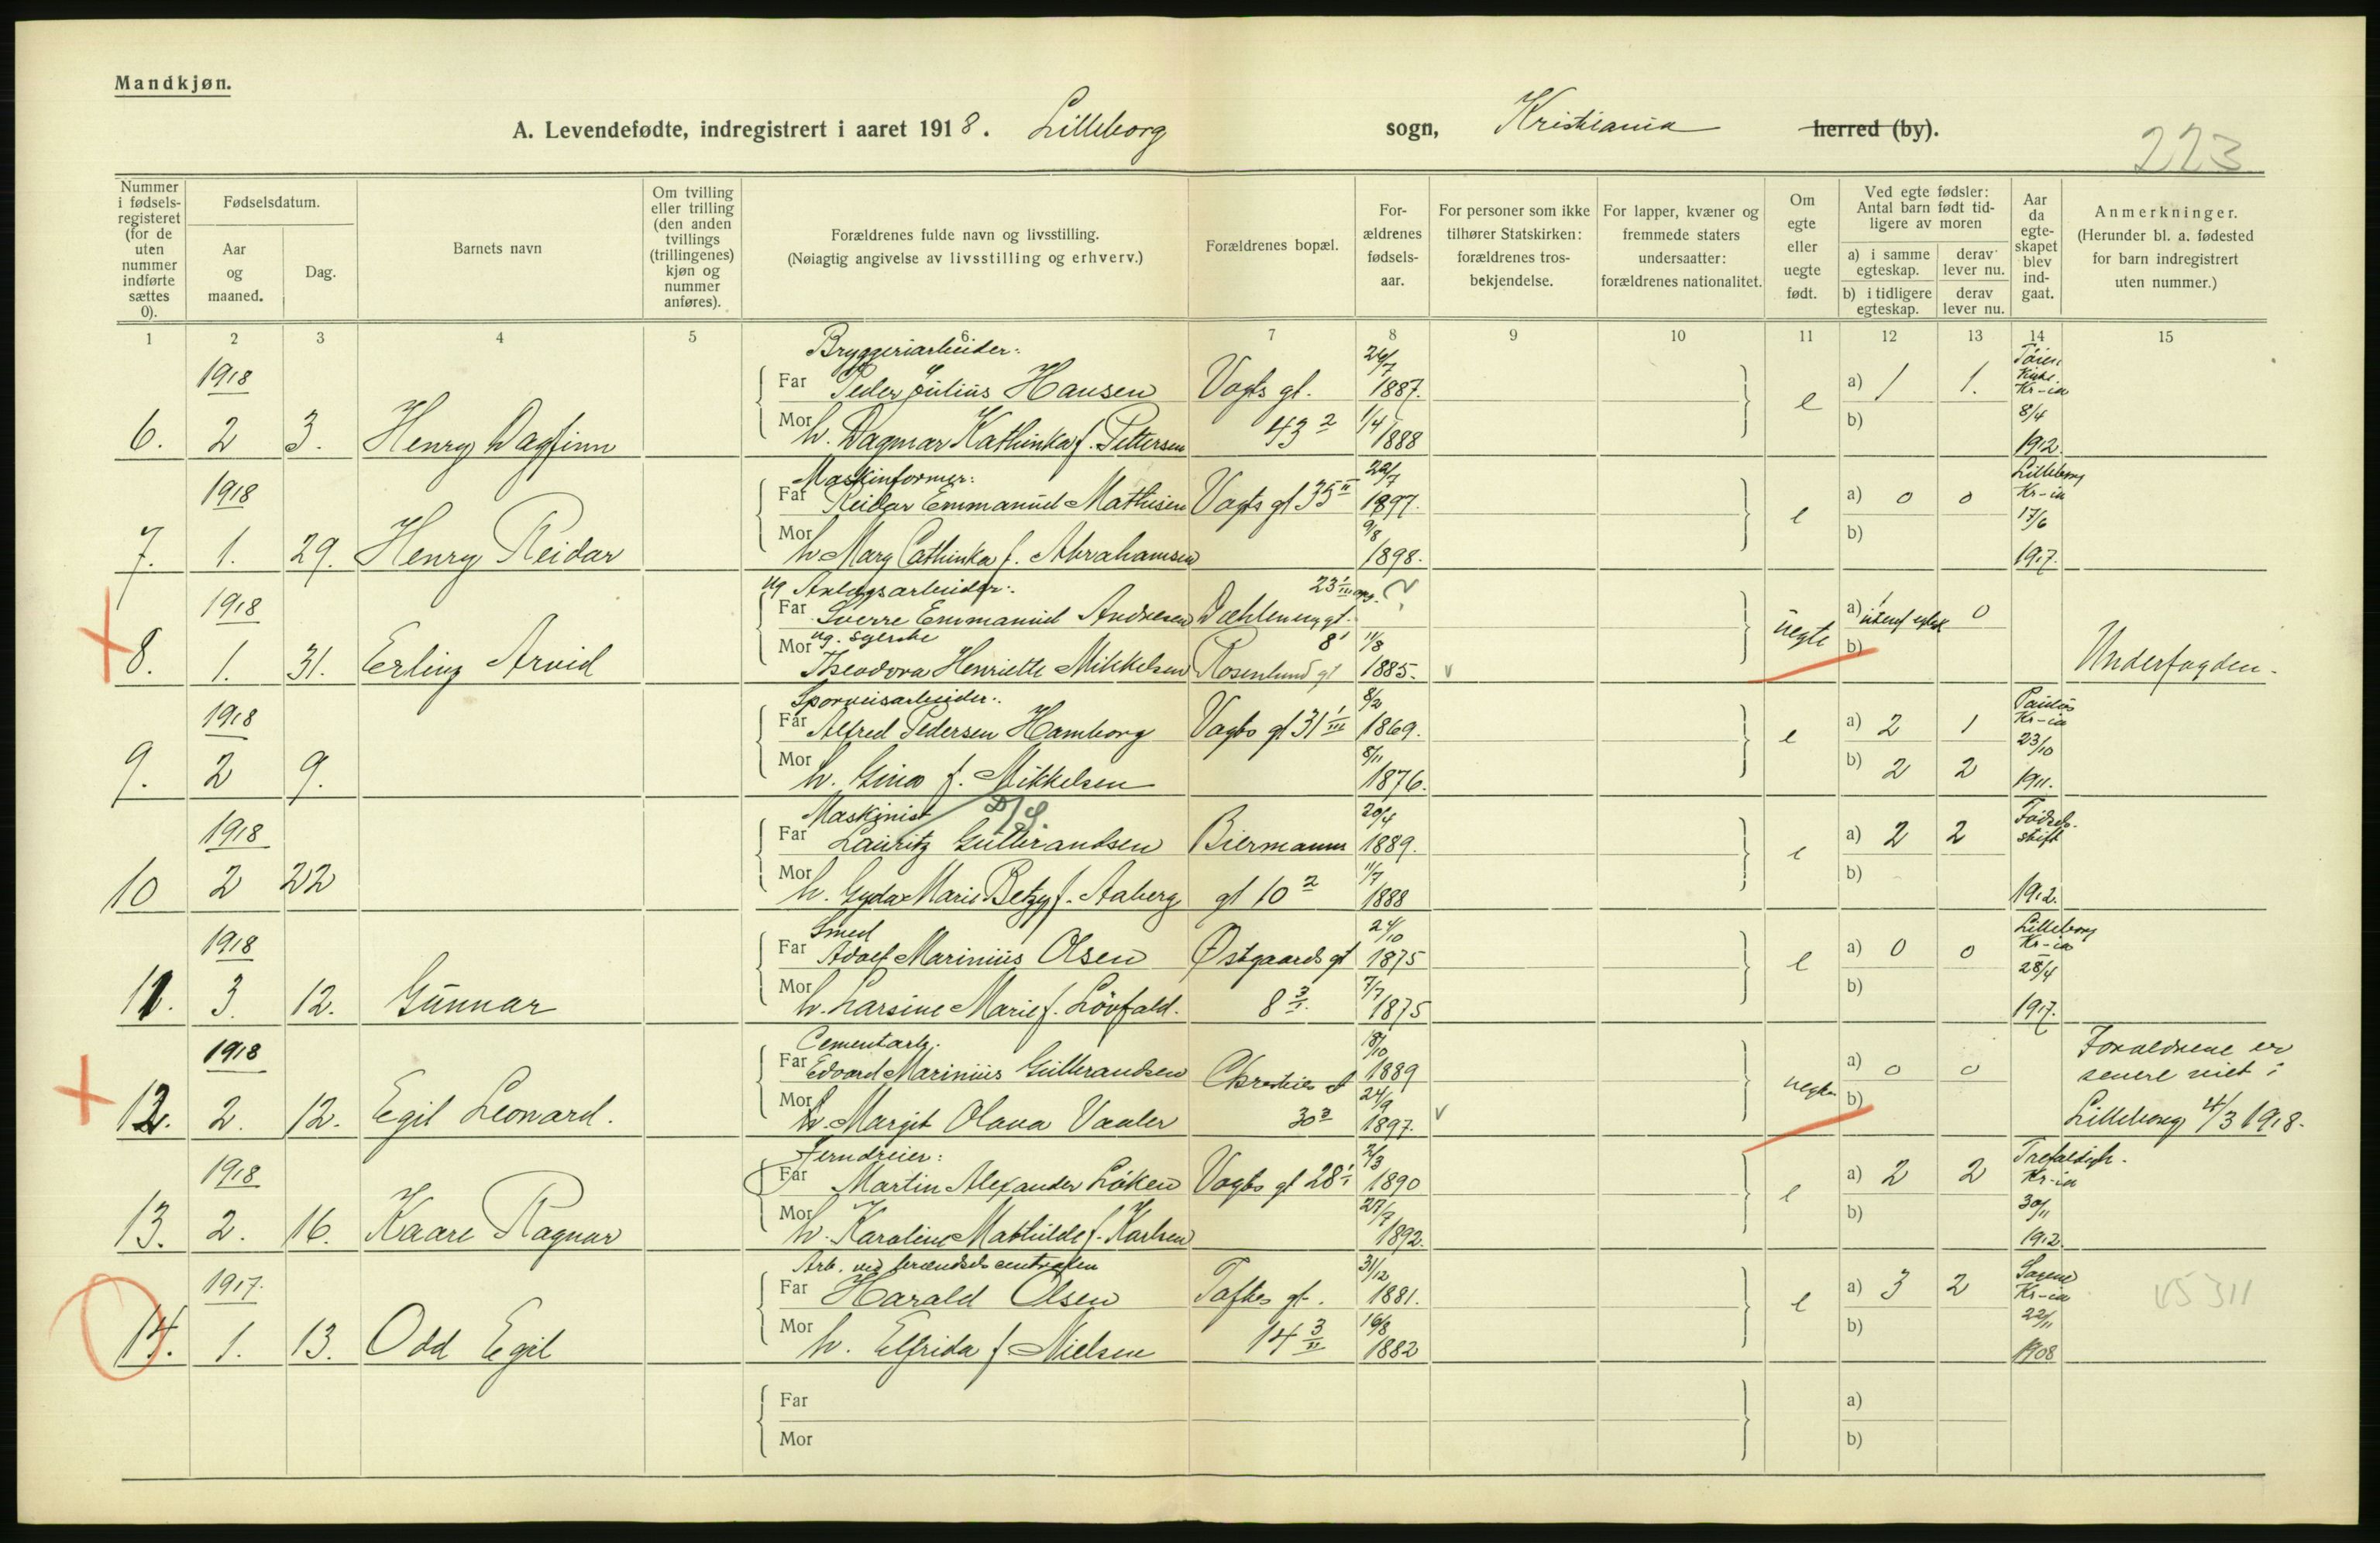 Mandkjøn.
A. Levendefødte, indregistrert i aaret 1918. Lilleborg sogn, Kristiania herred (by).
223
Nummer i fødselsregisteret (for de uten nummer indførte sættes 0).
Fødselsdatum.
Aar og maaned.
Dag.
Barnets navn
Om tvilling eller trilling (den anden tvillings (trillingenes) kjøn og nummer anføres).
Forældrenes fulde navn og livsstilling.
(Nøiagtig angivelse av livsstilling og erhverv.)
Forældrenes bopæl.
Forældrenes fødselsaar.
For personer som ikke tilhører Statskirken: forældrenes trosbekjendelse.
For lapper, kvæner og fremmede staters undersaatter: forældrenes nationalitet.
Om egte eller uegte født.
Ved egte fødsler: Antal barn født tidligere av moren
a) i samme egteskap.
derav lever nu.
b) i tidligere egteskap.
derav lever nu.
Aar da egteskapet blev indgaat.
Anmerkninger.
(Herunder bl. a. fødested for barn indregistrert uten nummer.)
1 2 3 4 5 6 7 8 9 10 11 12 13 14 15
Bryggeriarbeider:
1918 Far Peder Julius Hansen Vogts gt. 24/7 1887. e a) 1 1. Tøien Kirke Kr-ia
6. 2 3. Henry Dagfinn Mor h. Dagmar Kathinka f. Pettersen 43 2 1/4 1888 b) 8/4 1912.
Maskinformer:
1918 Far Reidar Emmanuel Mathisen Vogts gt 35 II 29/7 1897. e a) 0 0 Lilleborg Kr-ia
7. 1. 29. Henry Reidar Mor h. Mary Cathinka f. Abrahamsen 9/8 1898. b) 17/6 1917.
ug Anlægsarbeider: 23
1918 Far Sverre Emmanuel Andresen Dæhlenenggt. uegte a) 0
ug. syerske
8. 1. 31. Erling Arvid Mor Theodora Henriette Mikkelsen Rosenlund gt 8 11/8 1885. v b) Underfogden.
Sporveisarbeider:
1918 Far Alfred Pedersen Hamborg Vogts gt 31 III 8/2 1869. e a) 2 1 Paulus Kr-ia
9. 2 9. Mor h. Gina f. Mikkelsen 8/11 1876. b) 2 2 23/10 1911.
Maskinist D/S.
1918 Far Lauritz Gulbrandsen Biermanns 20/4 1889. e a) 2 2
10 2 22 Mor h. Gyda Marie Betzy f. Aaberg gt 10 2 11/7 1888 b) 1912.
Smed
1918 Far Adolf Marinius Olsen Østgaards gt 24/10 1875 e a) 0 0 Lilleborg Kr-ia
11. 3. 12. Gunnar Mor h. Larsine Marie f. Løvfald. 8 3/I. 7/7 1875 b) 28/4 1917.
Cementarb.
1918 Far Edvard Marinius Gulbrandsen Christies gt 18/10 1889 uegte a) 0 0 Forældrene er senere viet i
12. 2. 12. Egil Leonard. Mor h. Margit Olava Vaaler 30 3 24/9 1897. v b) Lilleborg 4/3 1918.
Jerndreier:
1918 Far Martin Alexander Løken Vogts gt 28 2/3 1890 e a) 2 2 Trefoldigh. Kr-ia
13. 2. 16. Kaare Ragnar Mor h. Karoline Mathilde f. Karlsen 27/7 1892. b) 30/11 1912.
Arb. ved brændselscentralen
1917. Far Harald Olsen Toftes gt. 31/12 1881. e a) 3 2 Sagene Kr-ia V5311
14. 1. 13. Odd Egil Mor h. Elfrida f. Nielsen 14 3/II 16/8 1882 b) 22/11 1908
Far a)
Mor b)